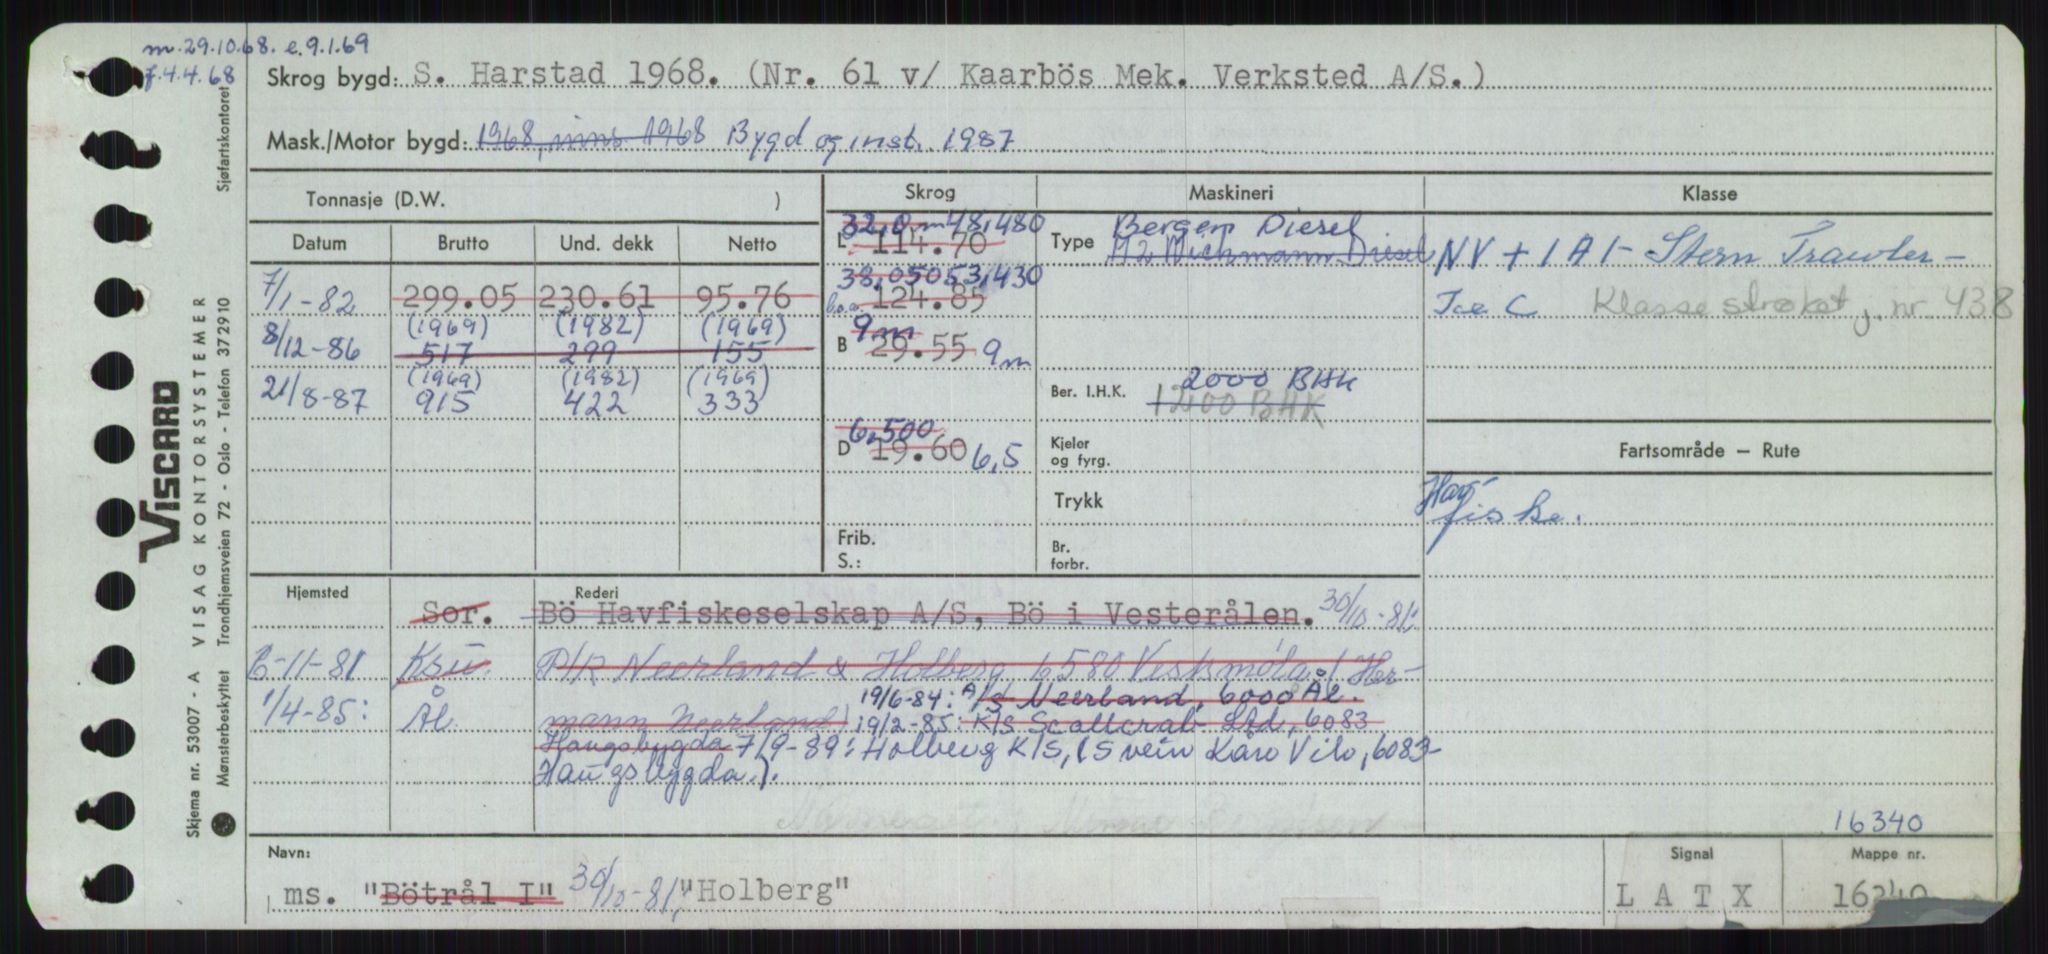 m.29.10.68. e.9.1.69
f.4.4.68
Skrog bygd: S. Harstad 1968. (Nr. 61 v/ Kaarbös Mek. Verksted A/S.)
Mask./Motor bygd: 1968, inns. 1968 Bygd og inst. 1987
Tonnasje (D.W. )
Skrog
Maskineri
Klasse
Datum Brutto Und. dekk Netto
7/1-82 299.05 230.61 95.76
(1969) (1982) (1969)
8/12-86 517 299 155
(1969) (1982) (1969)
21/8-87 915 422 333
32,0 m 48,480
L 114.70
38,050 53,430
b.o.a. 124.85
9m
B 29.55 9m
6,500
D 19.60 6,5
Frib.
S.:
Bergen Diesel
Type Wichmann Diesel
Ber. I.H.K. 2000 BHK
1200 BHK
Kjeler
og fyrg.
Trykk
Br.
forbr.
NV + 1A1 - Stern Trawler -
Ice C Klasse strøket j. nr. 438
Fartsområde — Rute
Hav-
fiske.
Hjemsted
Rederi
Sor. Bö Havfiskeselskap A/S, Bö i Vesterålen. 30/10-81:
6-11-81 Kru. P/R Neerland & Holberg, 6580 Vestsmøla v/ Her-
19/6-84: A/S Neerland, 6000 Ål.
1/4-85: Ål. mann Neerland) 19/2-85: K/S Scallcrab Ltd, 6083
Haugsbygda 7/9-89: Holberg K/S, (Svein Kåre Vilo, 6083-
Haugsbygda).
16340
Navn:
Signal
Mappe nr.
ms. "Bötrål I" 30/10-81: "Holberg"
LATX
16340
VISCARD
VISAG KONTORSYSTEMER
Skjema nr. 53007 - A
Mønsterbeskyttet
Trondhjemsveien 72 - Oslo - Telefon 372910
Sjøfartskontoret